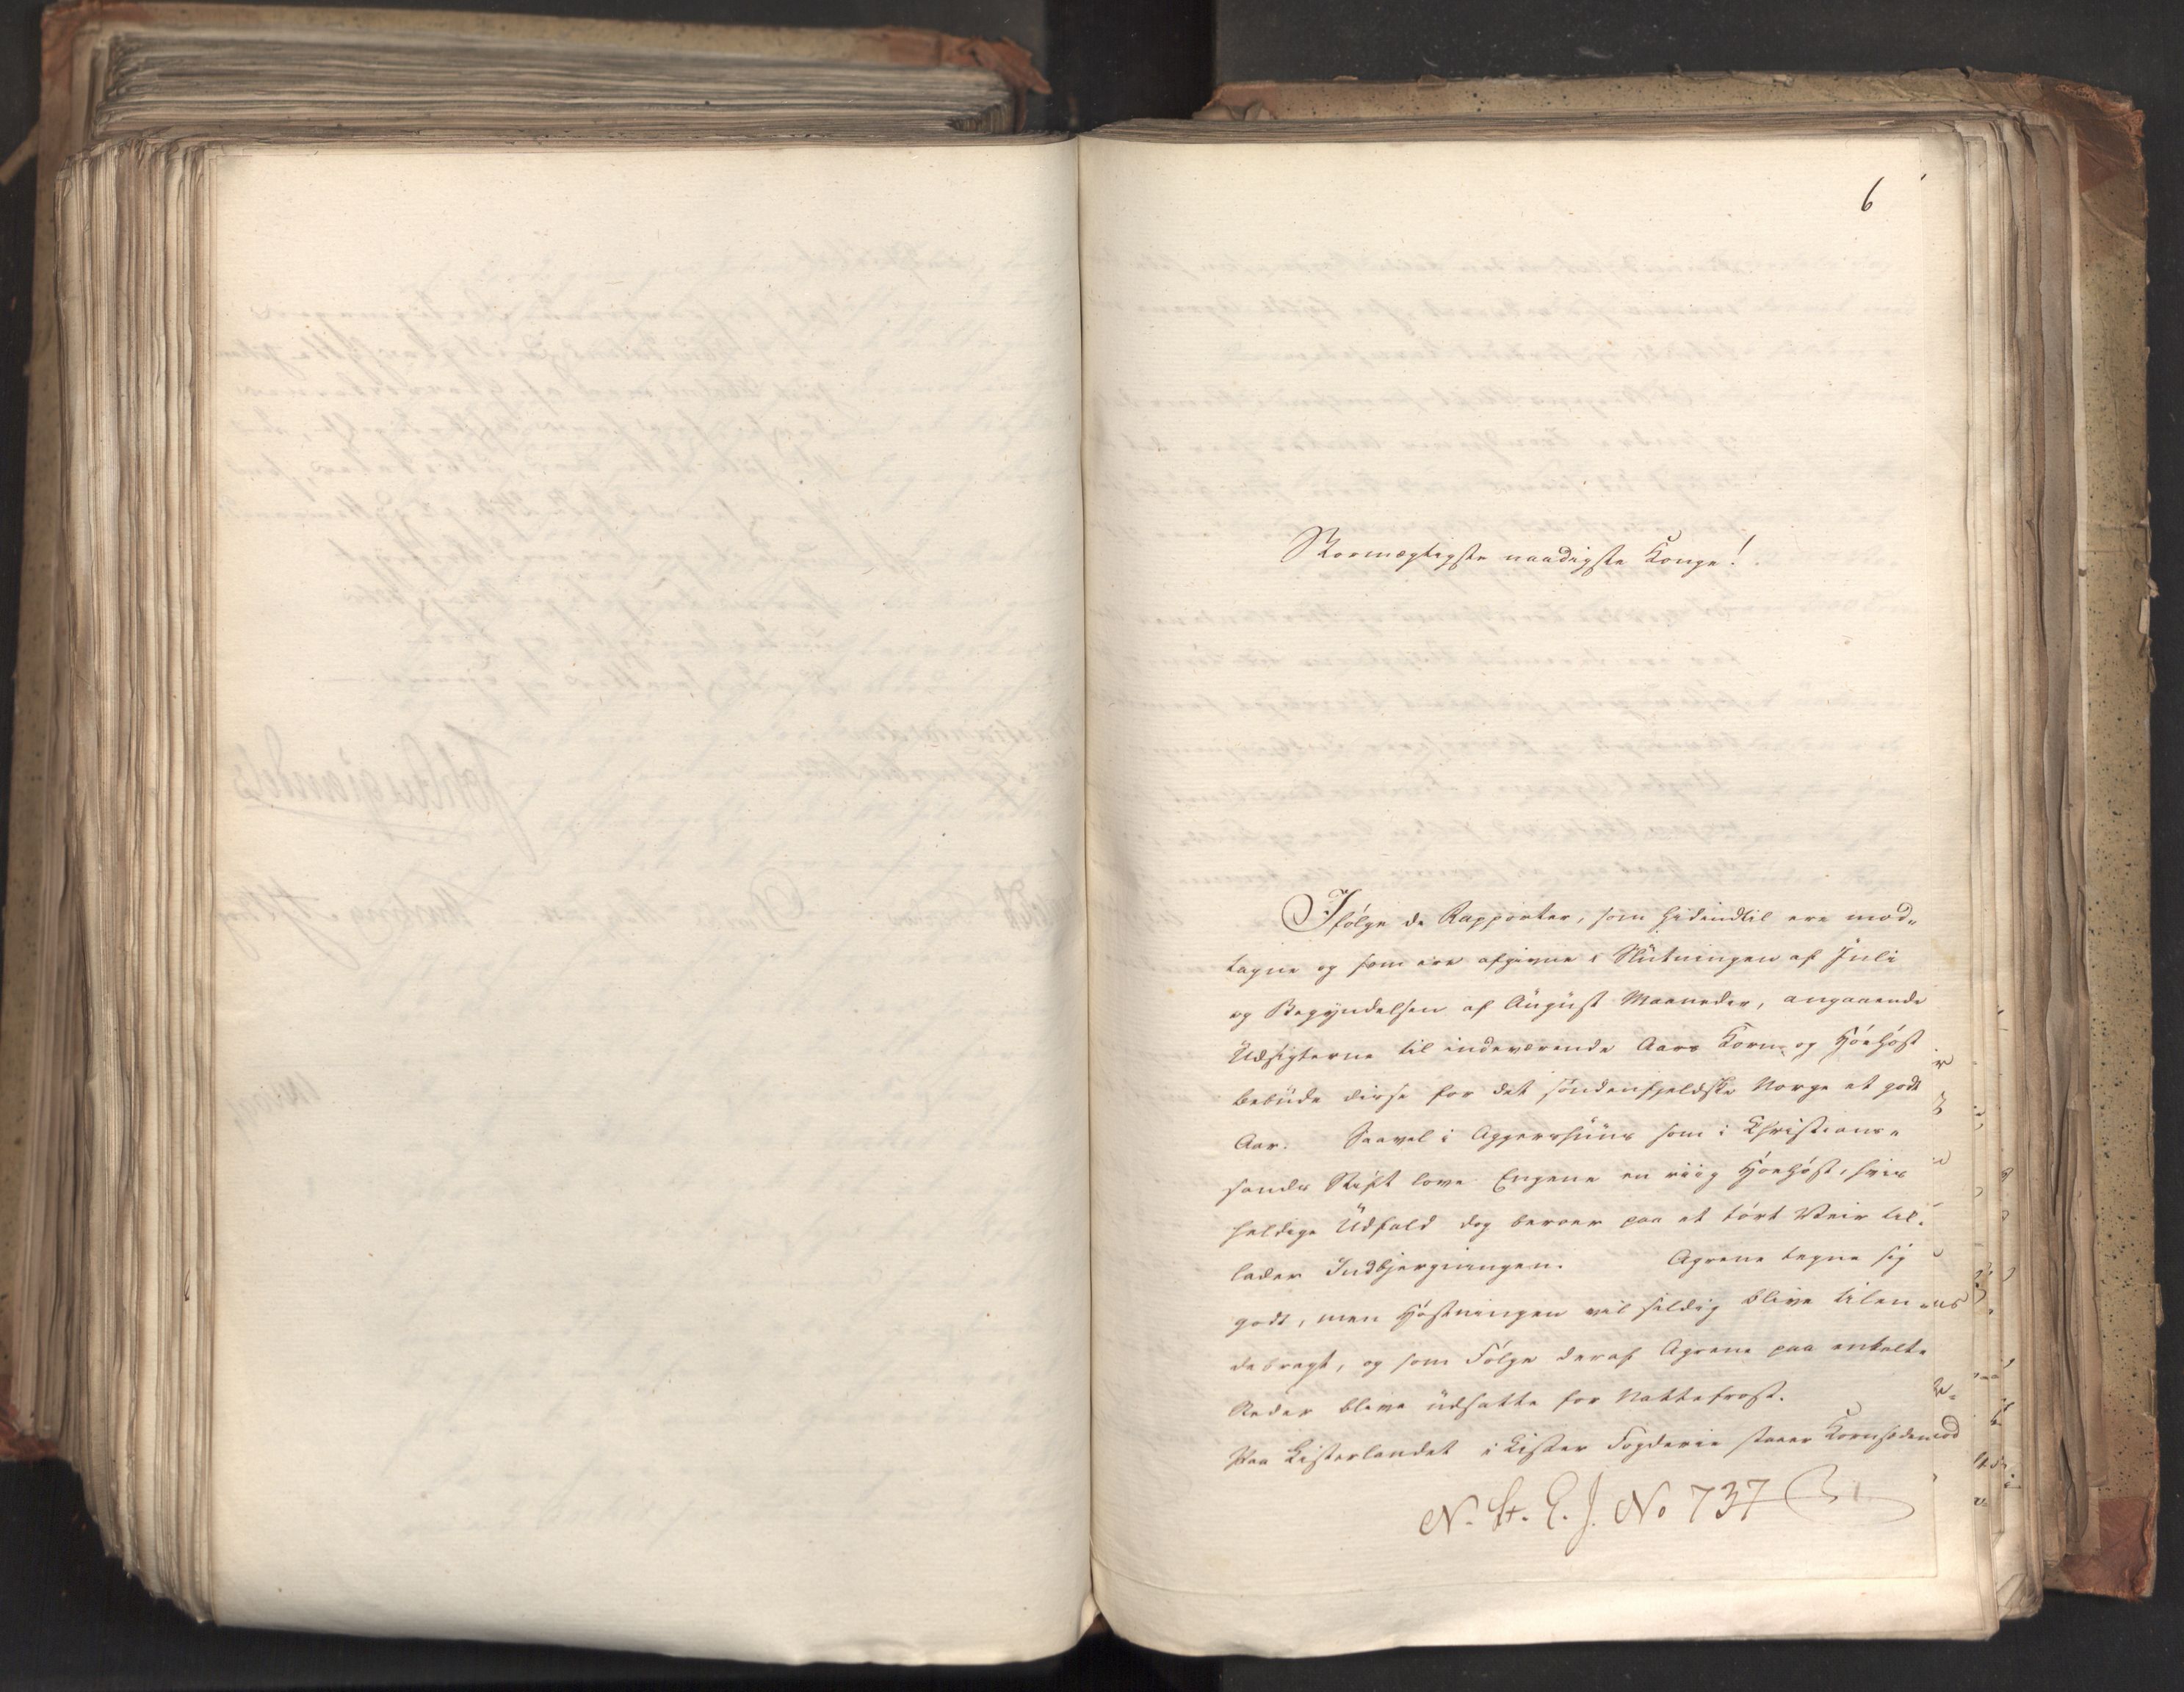 6
Stormægtigste naadigste Konge!
Ifölge de Rapporter, som hidindtil ere mod„
tagne og som ere afgivne i Slutningen af Juli
og Begyndelsen af August Maaneder, angaaende
Udsigterne til indeværende Aars Korn- og Höehöst
bebude disse for det söndenfjeldske Norge et godt
Aar. Saavel i Aggershuus som i Christian„
sands Stift love Engene en riig Höehöst, hvis
heldige Udfald dog beroer paa et tört Veir til„
lader Indbjergningen. Agrene tegne sig
godt, men Höstningen vil sildig blive tilen„
debragt, og som Fölge deraf Agrene paa enkelte
Steder blive udsatte for Nattefrost.
Paa Listerlandet i Lister Fogderie staaer Kornsæden
N. St. E. J. No 737